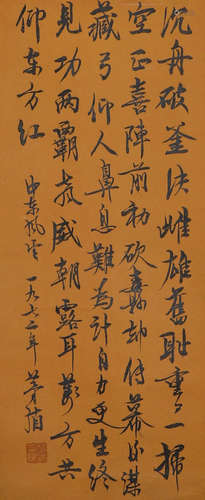 沉舟破釜決雌雄舊耻重重一掃
空正喜陣前初砍纛却傳幕後謀
藏弓仰人鼻息難為計自力更生終
見功兩霸聲威朝露耳萬方共
仰东方红
中东风云 一九六二年 茅盾